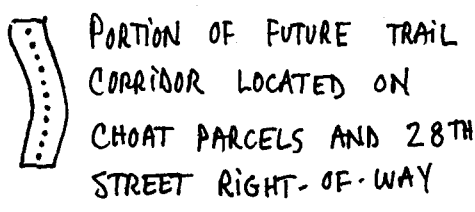 PORTION OF FUTURE TRAIL
CORRIDOR LOCATED ON
CHOAT PARCELS AND 28TH
STREET RIGHT-OF-WAY